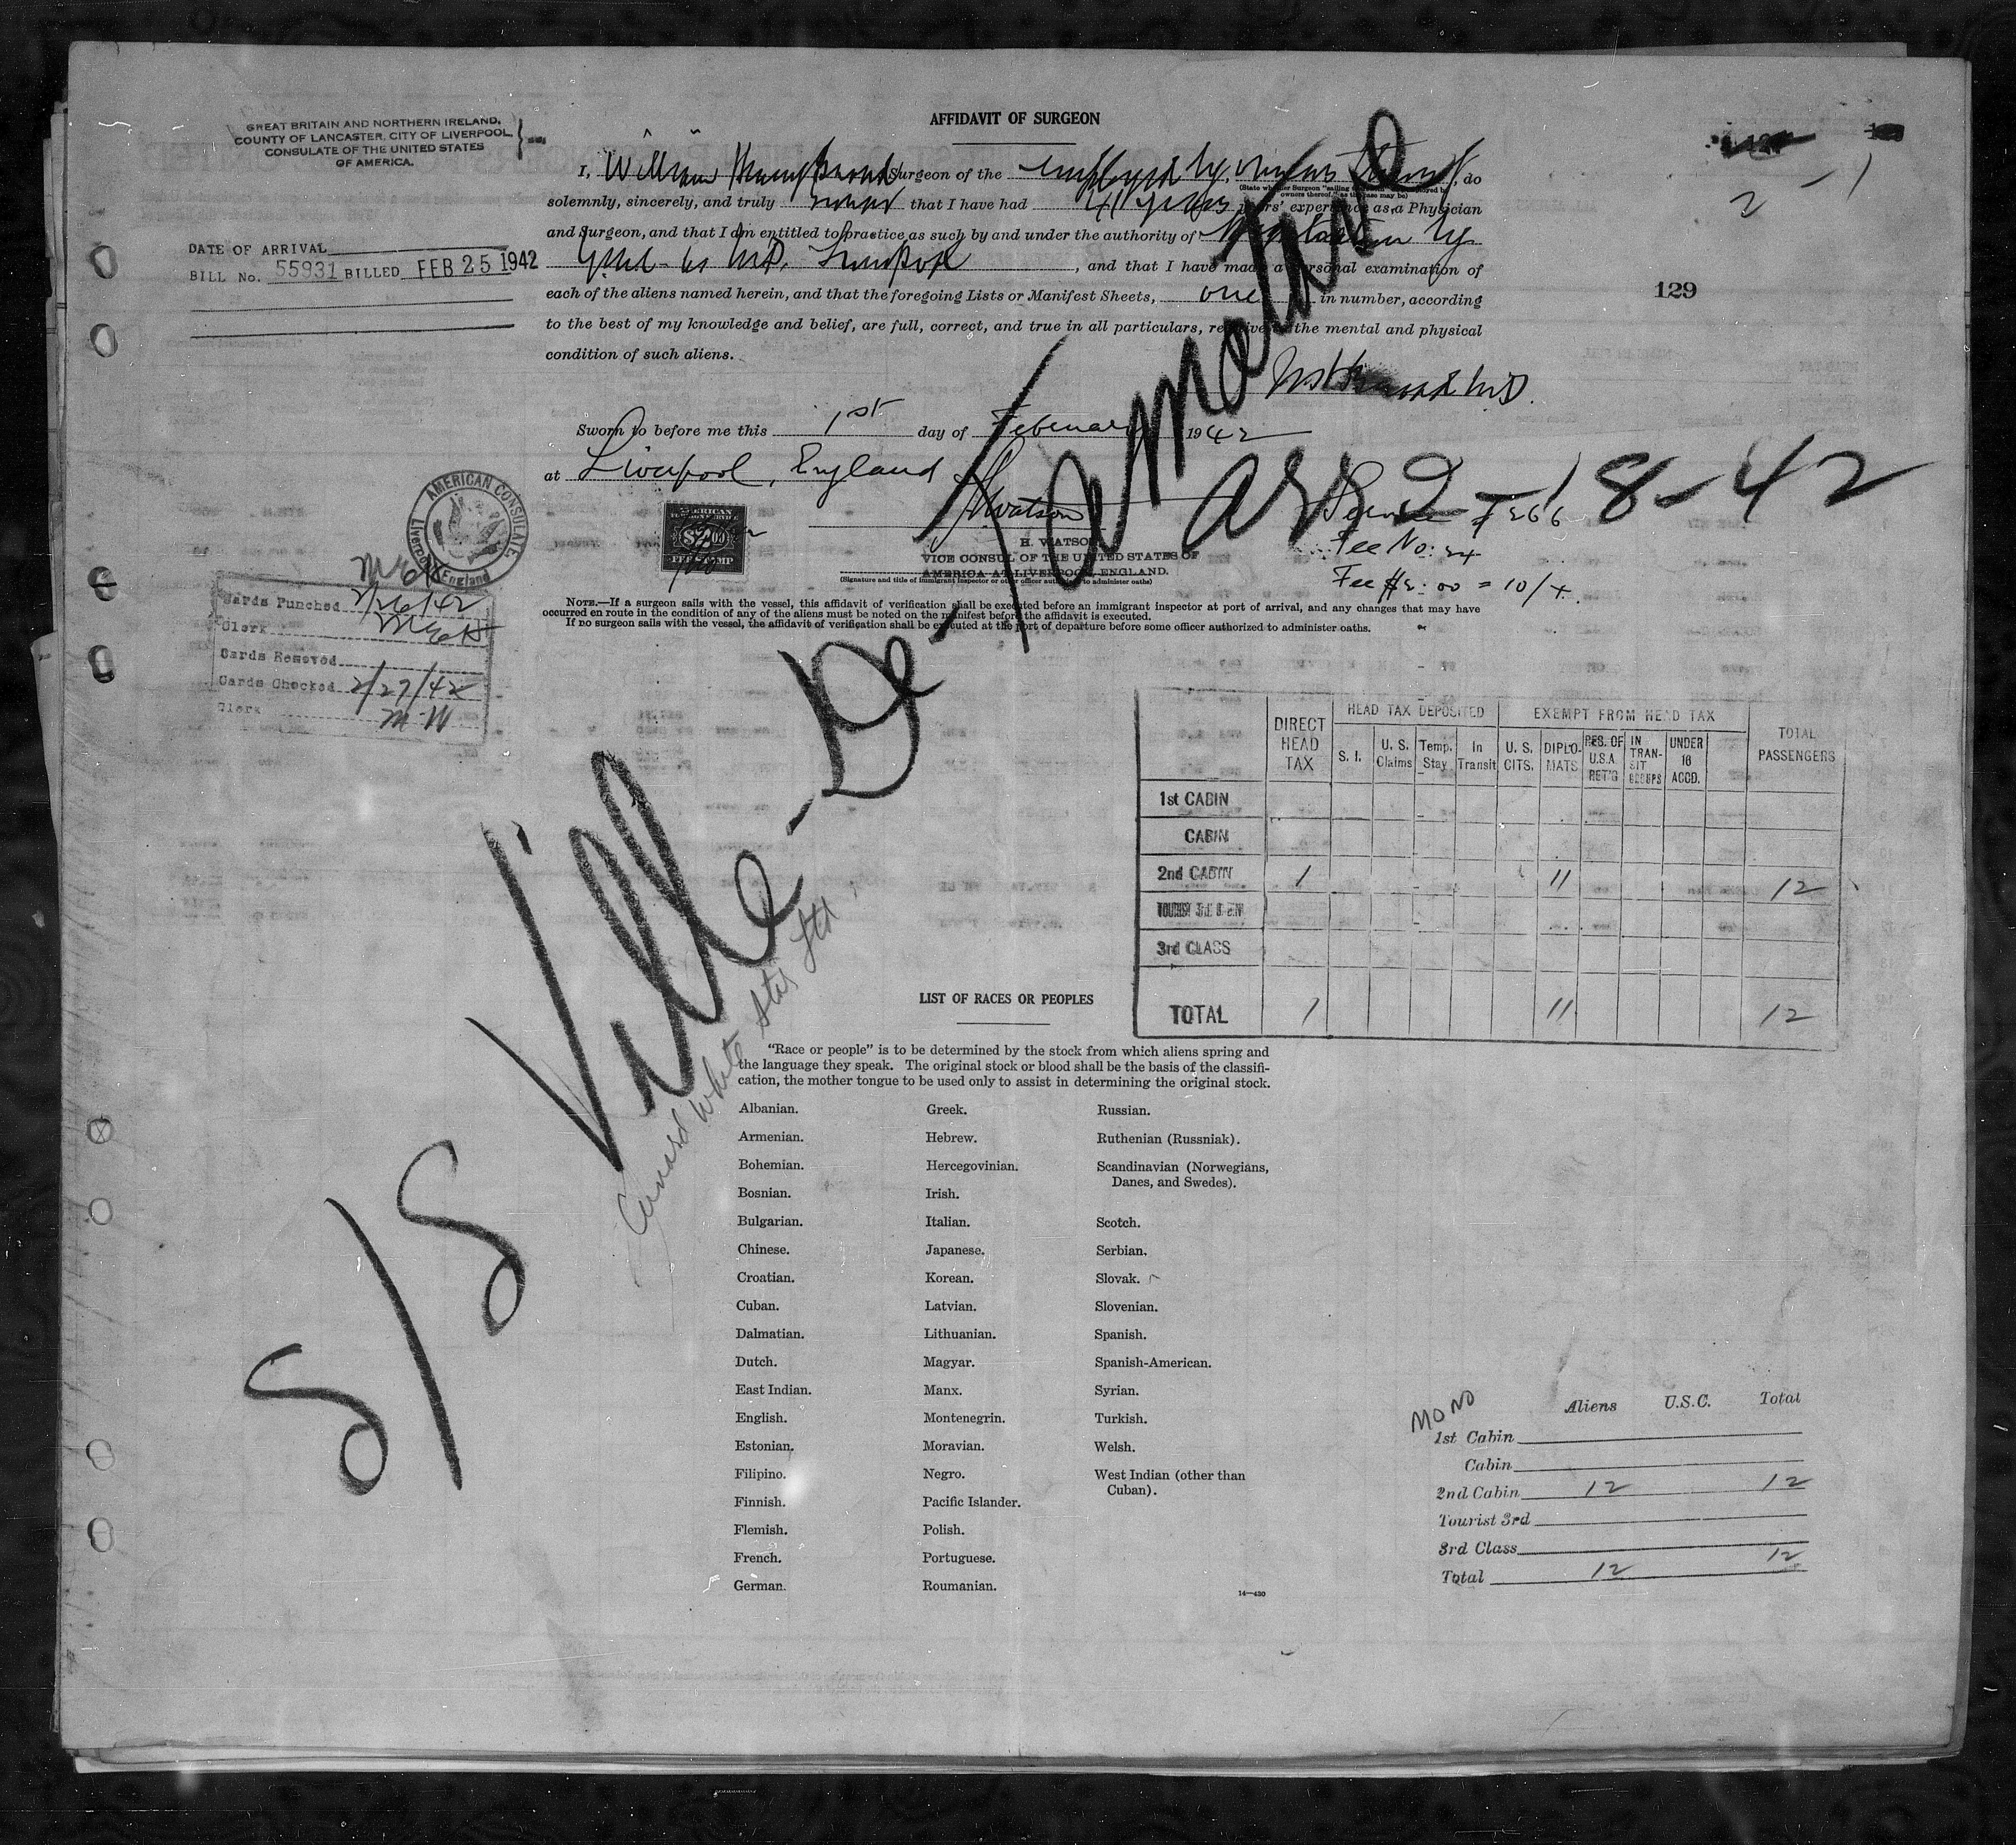 AFFIDAVIT OF SURGEON
GREAT BRITAIN AND NORTHERN IRELAND,
COUNTY OF LANCASTER, CITY OF LIVERPOOL,
CONSULATE OF THE UNITED STATES
OF AMERICA.
I, William Henry Surgeon of the employed by owners thereof, do
(State whether Surgeon "sailing employed by
owners thereof," as the case may be)
solemnly, sincerely, and truly swear that I have had 41 years years' experience as a Physician
and Surgeon, and that I am entitled to practice as such by and under the authority of Registration by
, and that I have made a personal examination of
each of the aliens named herein, and that the foregoing Lists or Manifest Sheets, one in number, according
to the best of my knowledge and belief, are full, correct, and true in all particulars, relative to the mental and physical
condition of such aliens.
M.D.
DATE OF ARRIVAL
BILL No. 55931 BILLED FEB 25 1942
2 - 1
129
Sworn to before me this 1st day of February 1942
at Liverpool, England
H Watson
H. WATSON
VICE CONSUL OF THE UNITED STATES OF
AMERICA AT LIVERPOOL, ENGLAND.
(Signature and title of immigrant inspector or other officer authorized to administer oaths)
Service No. 
Fee No: 24
Fee $2.00 = 10/4.
AMERICAN CONSULATE
Liverpool, England
AMERICAN
FOREIGN SERVICE
$2.00
FEE STAMP
NOTE.—If a surgeon sails with the vessel, this affidavit of verification shall be executed before an immigrant inspector at port of arrival, and any changes that may have
occurred en route in the condition of any of the aliens must be noted on the manifest before the affidavit is executed.
If no surgeon sails with the vessel, the affidavit of verification shall be executed at the port of departure before some officer authorized to administer oaths.
Cards Punched 2/26/42
Clerk
Cards Removed
Cards Checked 2/27/42
Clerk M W
S/S Ville-De-Tamatave
arr 2-18-42
Cunard White Star Ltd
DIRECT HEAD TAX
HEAD TAX DEPOSITED
EXEMPT FROM HEAD TAX
TOTAL PASSENGERS
S. I.
U. S. Claims
Temp. Stay
In Transit
U. S. CITS.
DIPLOMATS
RES. OF U.S.A. RET'G
IN TRANSIT GROUPS
UNDER 16 ACCD.
1st CABIN
CABIN
2nd CABIN 1 11 12
TOURIST 3rd CABIN
3rd CLASS
TOTAL 1 11 12
LIST OF RACES OR PEOPLES
"Race or people" is to be determined by the stock from which aliens spring and
the language they speak. The original stock or blood shall be the basis of the classifi-
cation, the mother tongue to be used only to assist in determining the original stock.
Albanian. Greek. Russian.
Armenian. Hebrew. Ruthenian (Russniak).
Bohemian. Hercegovinian. Scandinavian (Norwegians,
Danes, and Swedes).
Bosnian. Irish.
Bulgarian. Italian. Scotch.
Chinese. Japanese. Serbian.
Croatian. Korean. Slovak.
Cuban. Latvian. Slovenian.
Dalmatian. Lithuanian. Spanish.
Dutch. Magyar. Spanish-American.
East Indian. Manx. Syrian.
English. Montenegrin. Turkish.
Estonian. Moravian. Welsh.
Filipino. Negro. West Indian (other than
Cuban).
Finnish. Pacific Islander.
Flemish. Polish.
French. Portuguese.
German. Roumanian.
14—430
MONO
Aliens U.S.C. Total
1st Cabin
Cabin
2nd Cabin 12 12
Tourist 3rd
3rd Class
Total 12 12